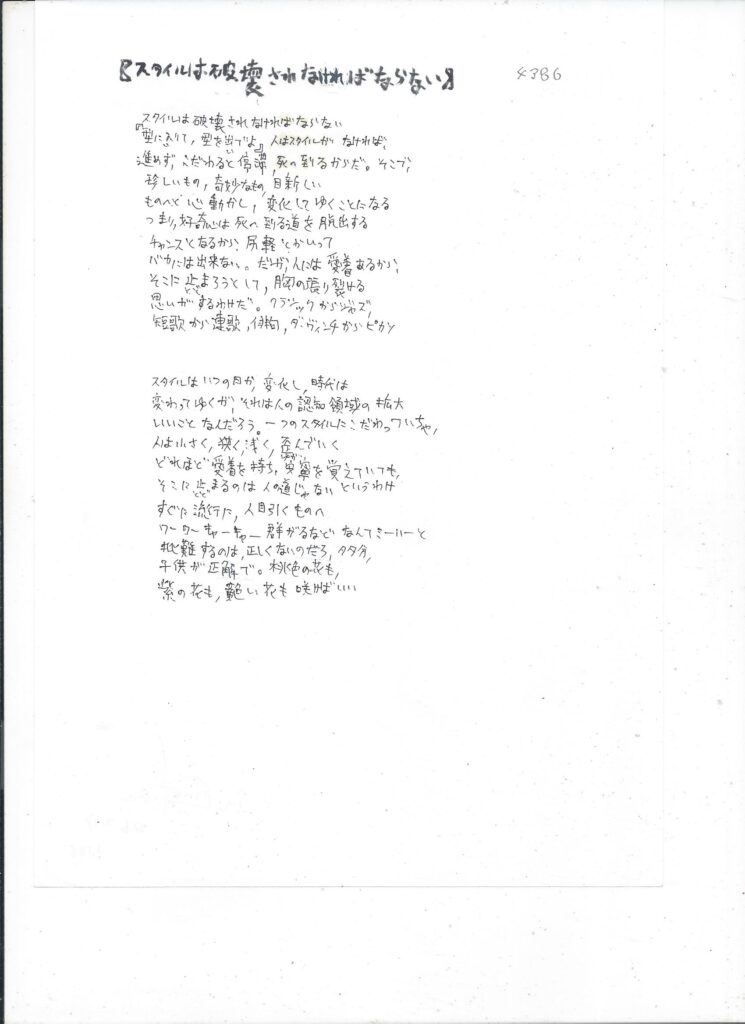 『スタイルは破壊されなければならない』 4386
スタイルは破壊されなければならない
『型に入りて、型を出でよ』人はスタイルがなければ、
進めず、こだわると停滞、死へ到るからだ。そこで、
珍しいもの、奇妙なもの、目新しい
ものへと心動かし、変化してゆくことになる
つまり、好奇心は死へ到る道を脱出する
チャンスとなるから、尻軽とかいって
バカには出来ない。だが、人には愛着あるから、
そこに止まろうとして、胸の張り裂ける
思いがするわけだ。クラシックからジャズ、
短歌から連歌、俳句、ダ・ヴィンチからピカソ
スタイルはいつの日か、変化し、時代は
変わってゆくが、それは人の認知領域の拡大
いいことなんだろう。一つのスタイルにこだわっていちゃ、
人は小さく、狭く、浅く、歪んでいく
どれほど愛着を持ち、安寧を覚えていても、
そこに止まるのは人の道じゃないというわけ
すぐに流行に、人目引くものへ
ワーワーキャーキャー群がるなどなんてミーハーと
批難するのは、正しくないのだろ、多分、
子供が正解で。桃色の花も、
紫の花も、艶い花も咲けばいい